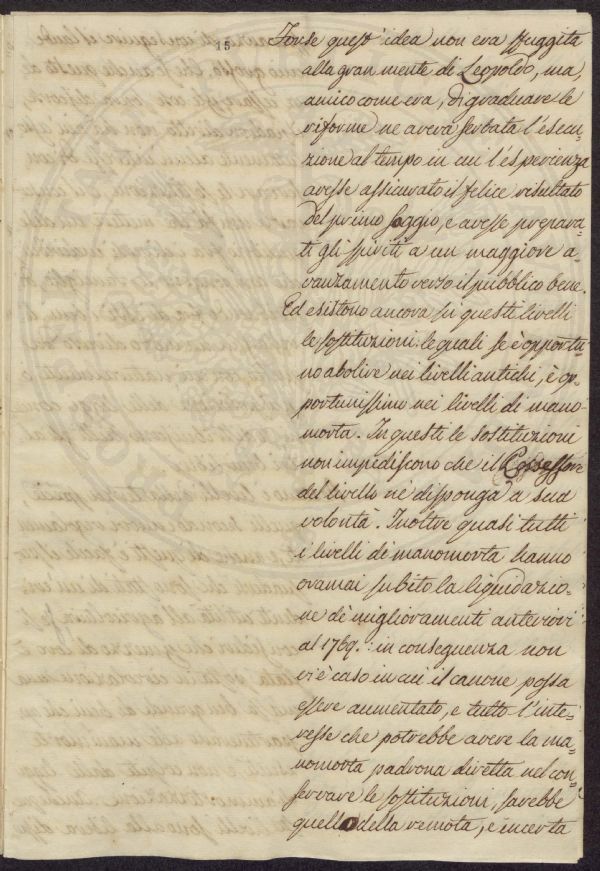 15
Forse quest' idea non era sfuggita
alla gran mente di Leopoldo, ma,
amico come era, di graduare le
riforme ne aveva serbata l'esecu-
zione al tempo in cui l'esperienza
avesse assicurato il felice resultato
del primo saggio, e avesse prepara-
ti gli spiriti a un maggiore a-
vanzamento verso il pubblico bene.
Ed esistono ancora su questi livelli
le sostituzioni le quali se è opportu-
no abolire nei livelli antichi, è op-
portunissimo nei livelli di mano-
morta. In questi le sostituzioni
non impediscono che il Possessore
del livello nè disponga a sua
volontà. Inoltre quasi tutti
i livelli di manomorta hanno
oramai subito la liquidazio-
ne dè miglioramenti anteriori
al 1769.: in conseguenza non
vi è caso in cui il canone possa
essere aumentato, e tutto l'inte-
resse che potrebbe avere la ma-
nomorta padrona diretta nel con-
servare le sostituzioni, sarebbe
quello della remota, e incerta